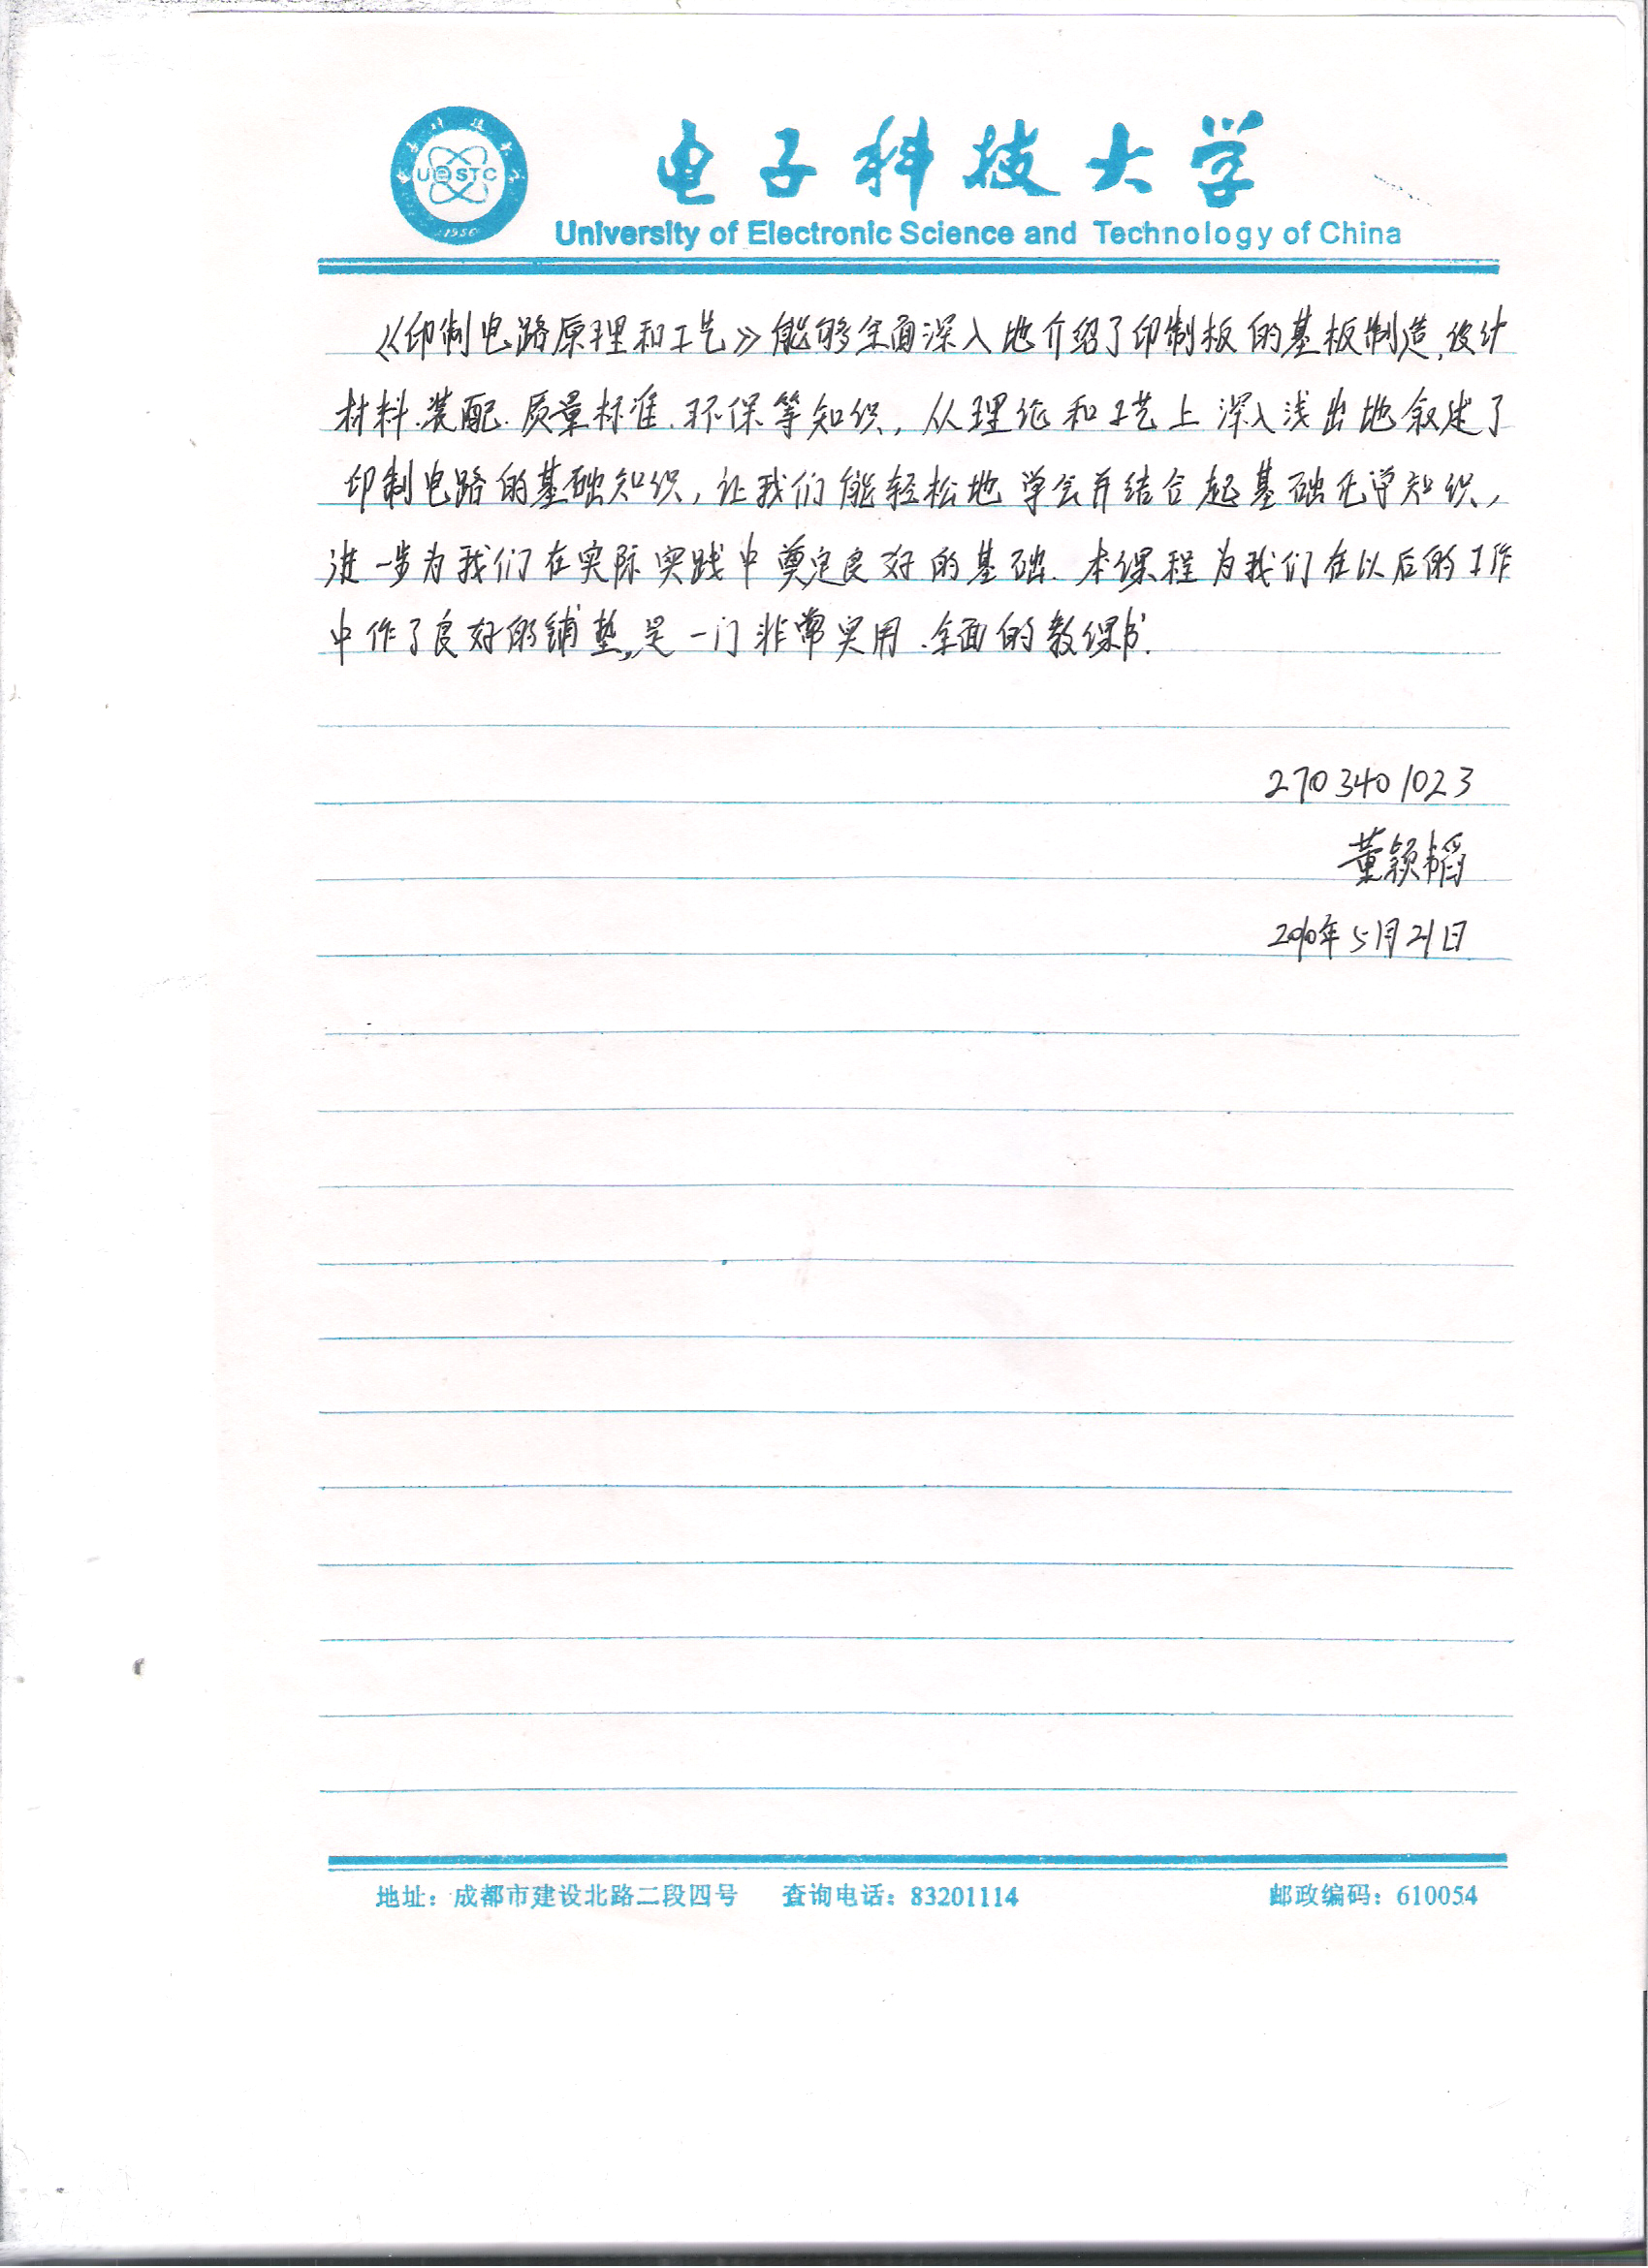 UESTC
1956
电子科技大学
University of Electronic Science and Technology of China
《印制电路原理和工艺》能够全面深入地介绍了印制板的基板制造、设计
材料、装配、质量标准、环保等知识，从理论和工艺上深入浅出地叙述了
印制电路的基础知识，让我们能轻松地学会并结合起基础化学知识，
进一步为我们在实际实践中奠定良好的基础．本课程为我们在以后的工作
中作了良好的铺垫，是一门非常实用、全面的教课书．
2703401023
董颖韬
2010年5月21日
地址：成都市建设北路二段四号 查询电话：83201114 邮政编码：610054